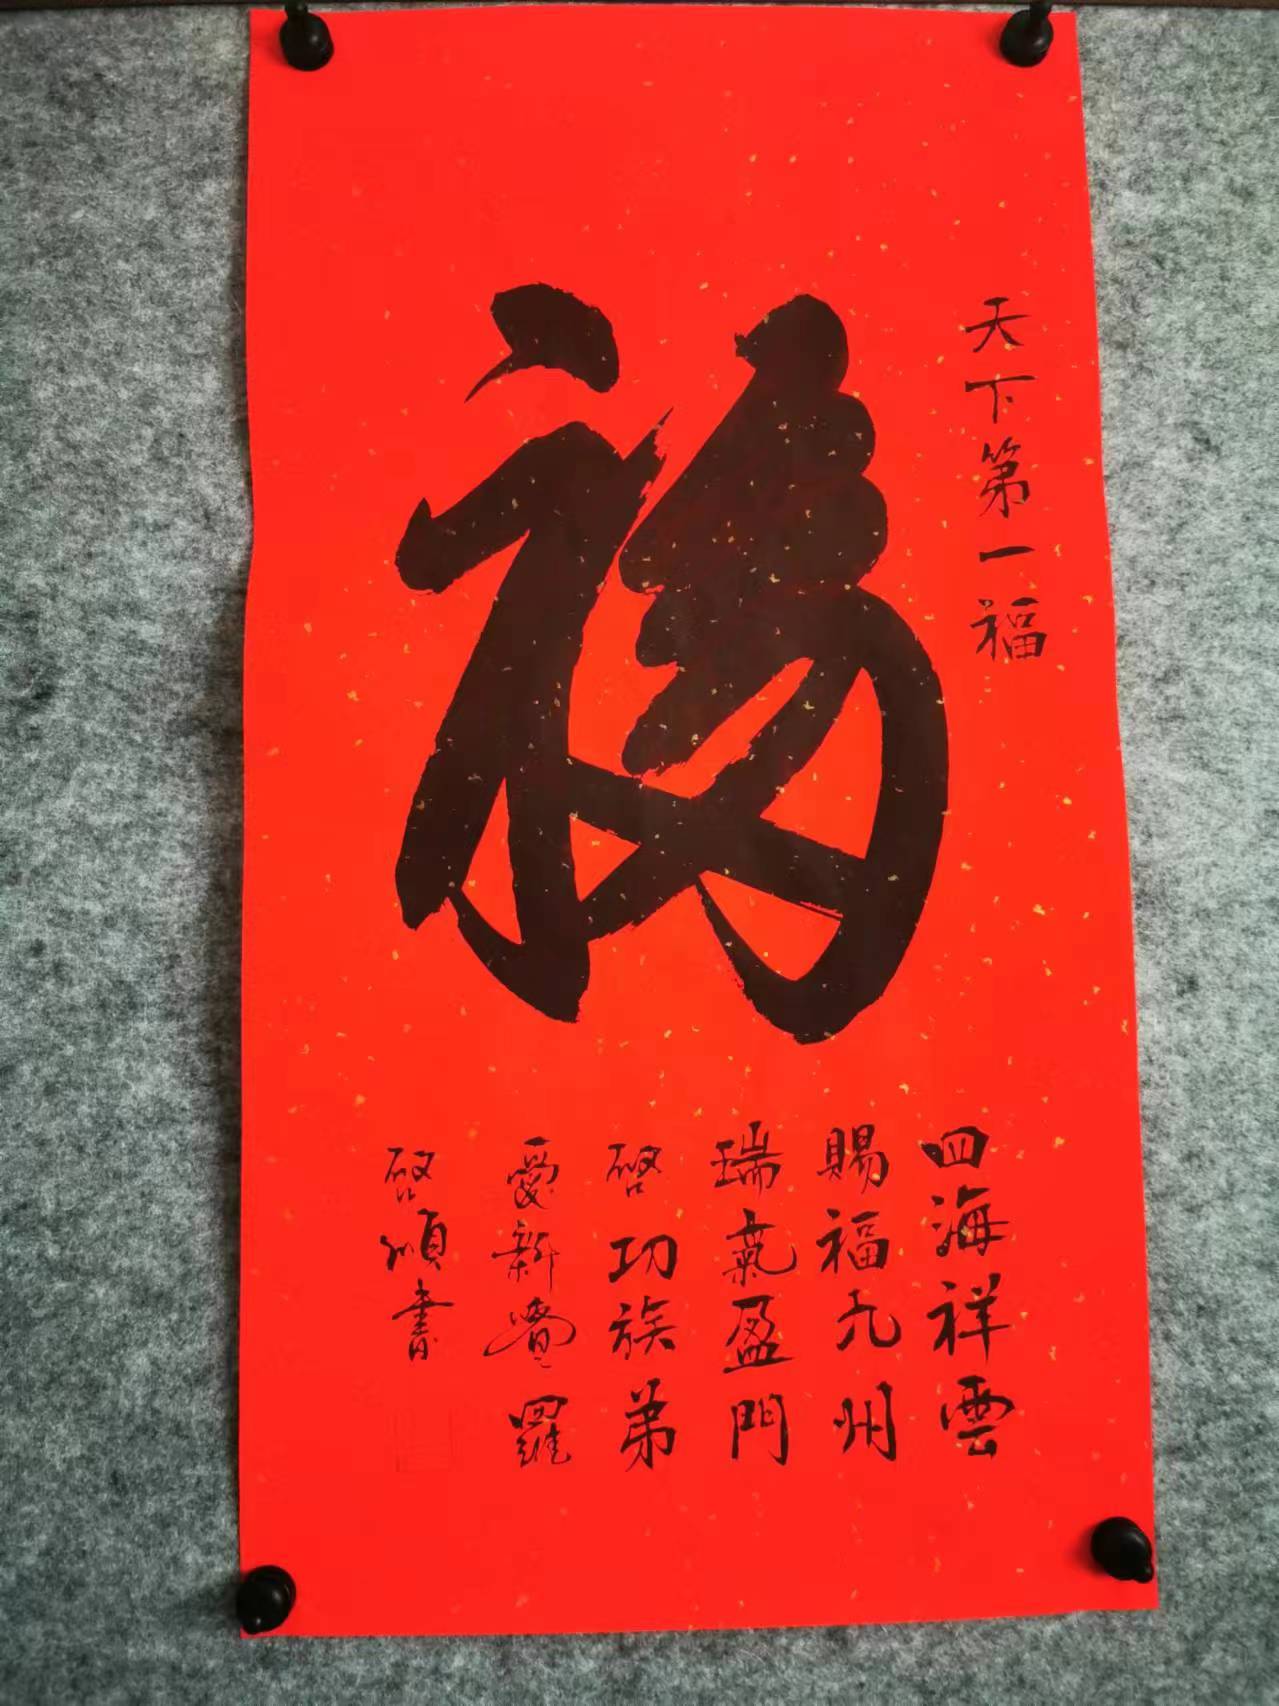 天下第一福
福
四海祥雲
賜福九州
瑞氣盈門
啓功族弟
愛新覺羅
啓順書